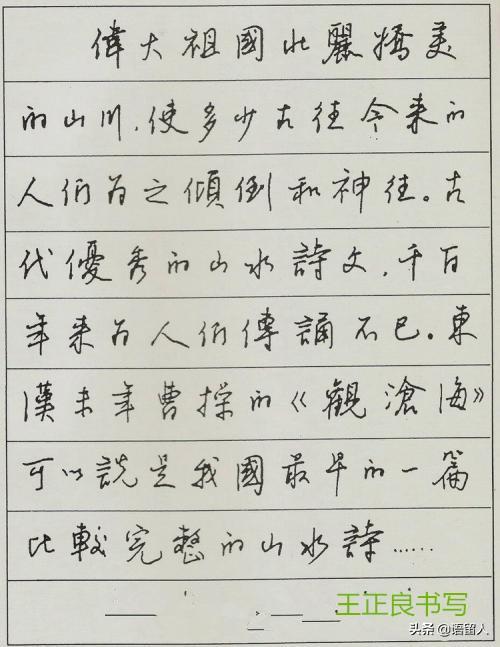 偉大祖國壯麗嬌美
的山川,使多少古往今来的
人们为之傾倒和神往。古
代優秀的山水詩文,千百
年来为人们傳誦不已。東
漢末年曹操的《觀滄海》
可以説是我國最早的一篇
比較完整的山水詩……
王正良书写
头条 @语留人